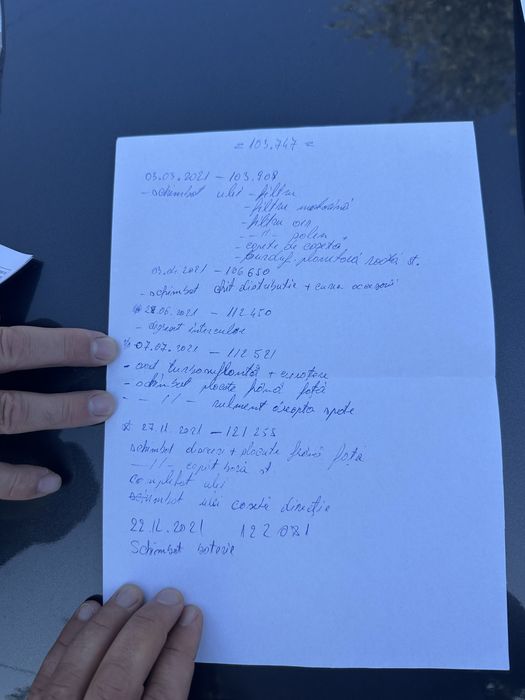 = 103.747 =
03.03.2021 - 103.908
- schimbat ulei - filtru
- filtru motorină
- filtru aer
- -"- polen
- casetă de
- burduf planetară roată st.
2021 - 106650
- schimbat kit distributie + curea accesorii
28.06.2021 - 112.450
- intercooler
07.07.2021 - 112521
- turbosuflantă +
- schimbat placute frână față
- -//- rulment dreapta spate
27.11.2021 - 121255
schimbat discuri + placute frână față
-//- st.
completat ulei
schimbat ulei casetă direcție
22.12.2021 122 071
Schimbat baterie